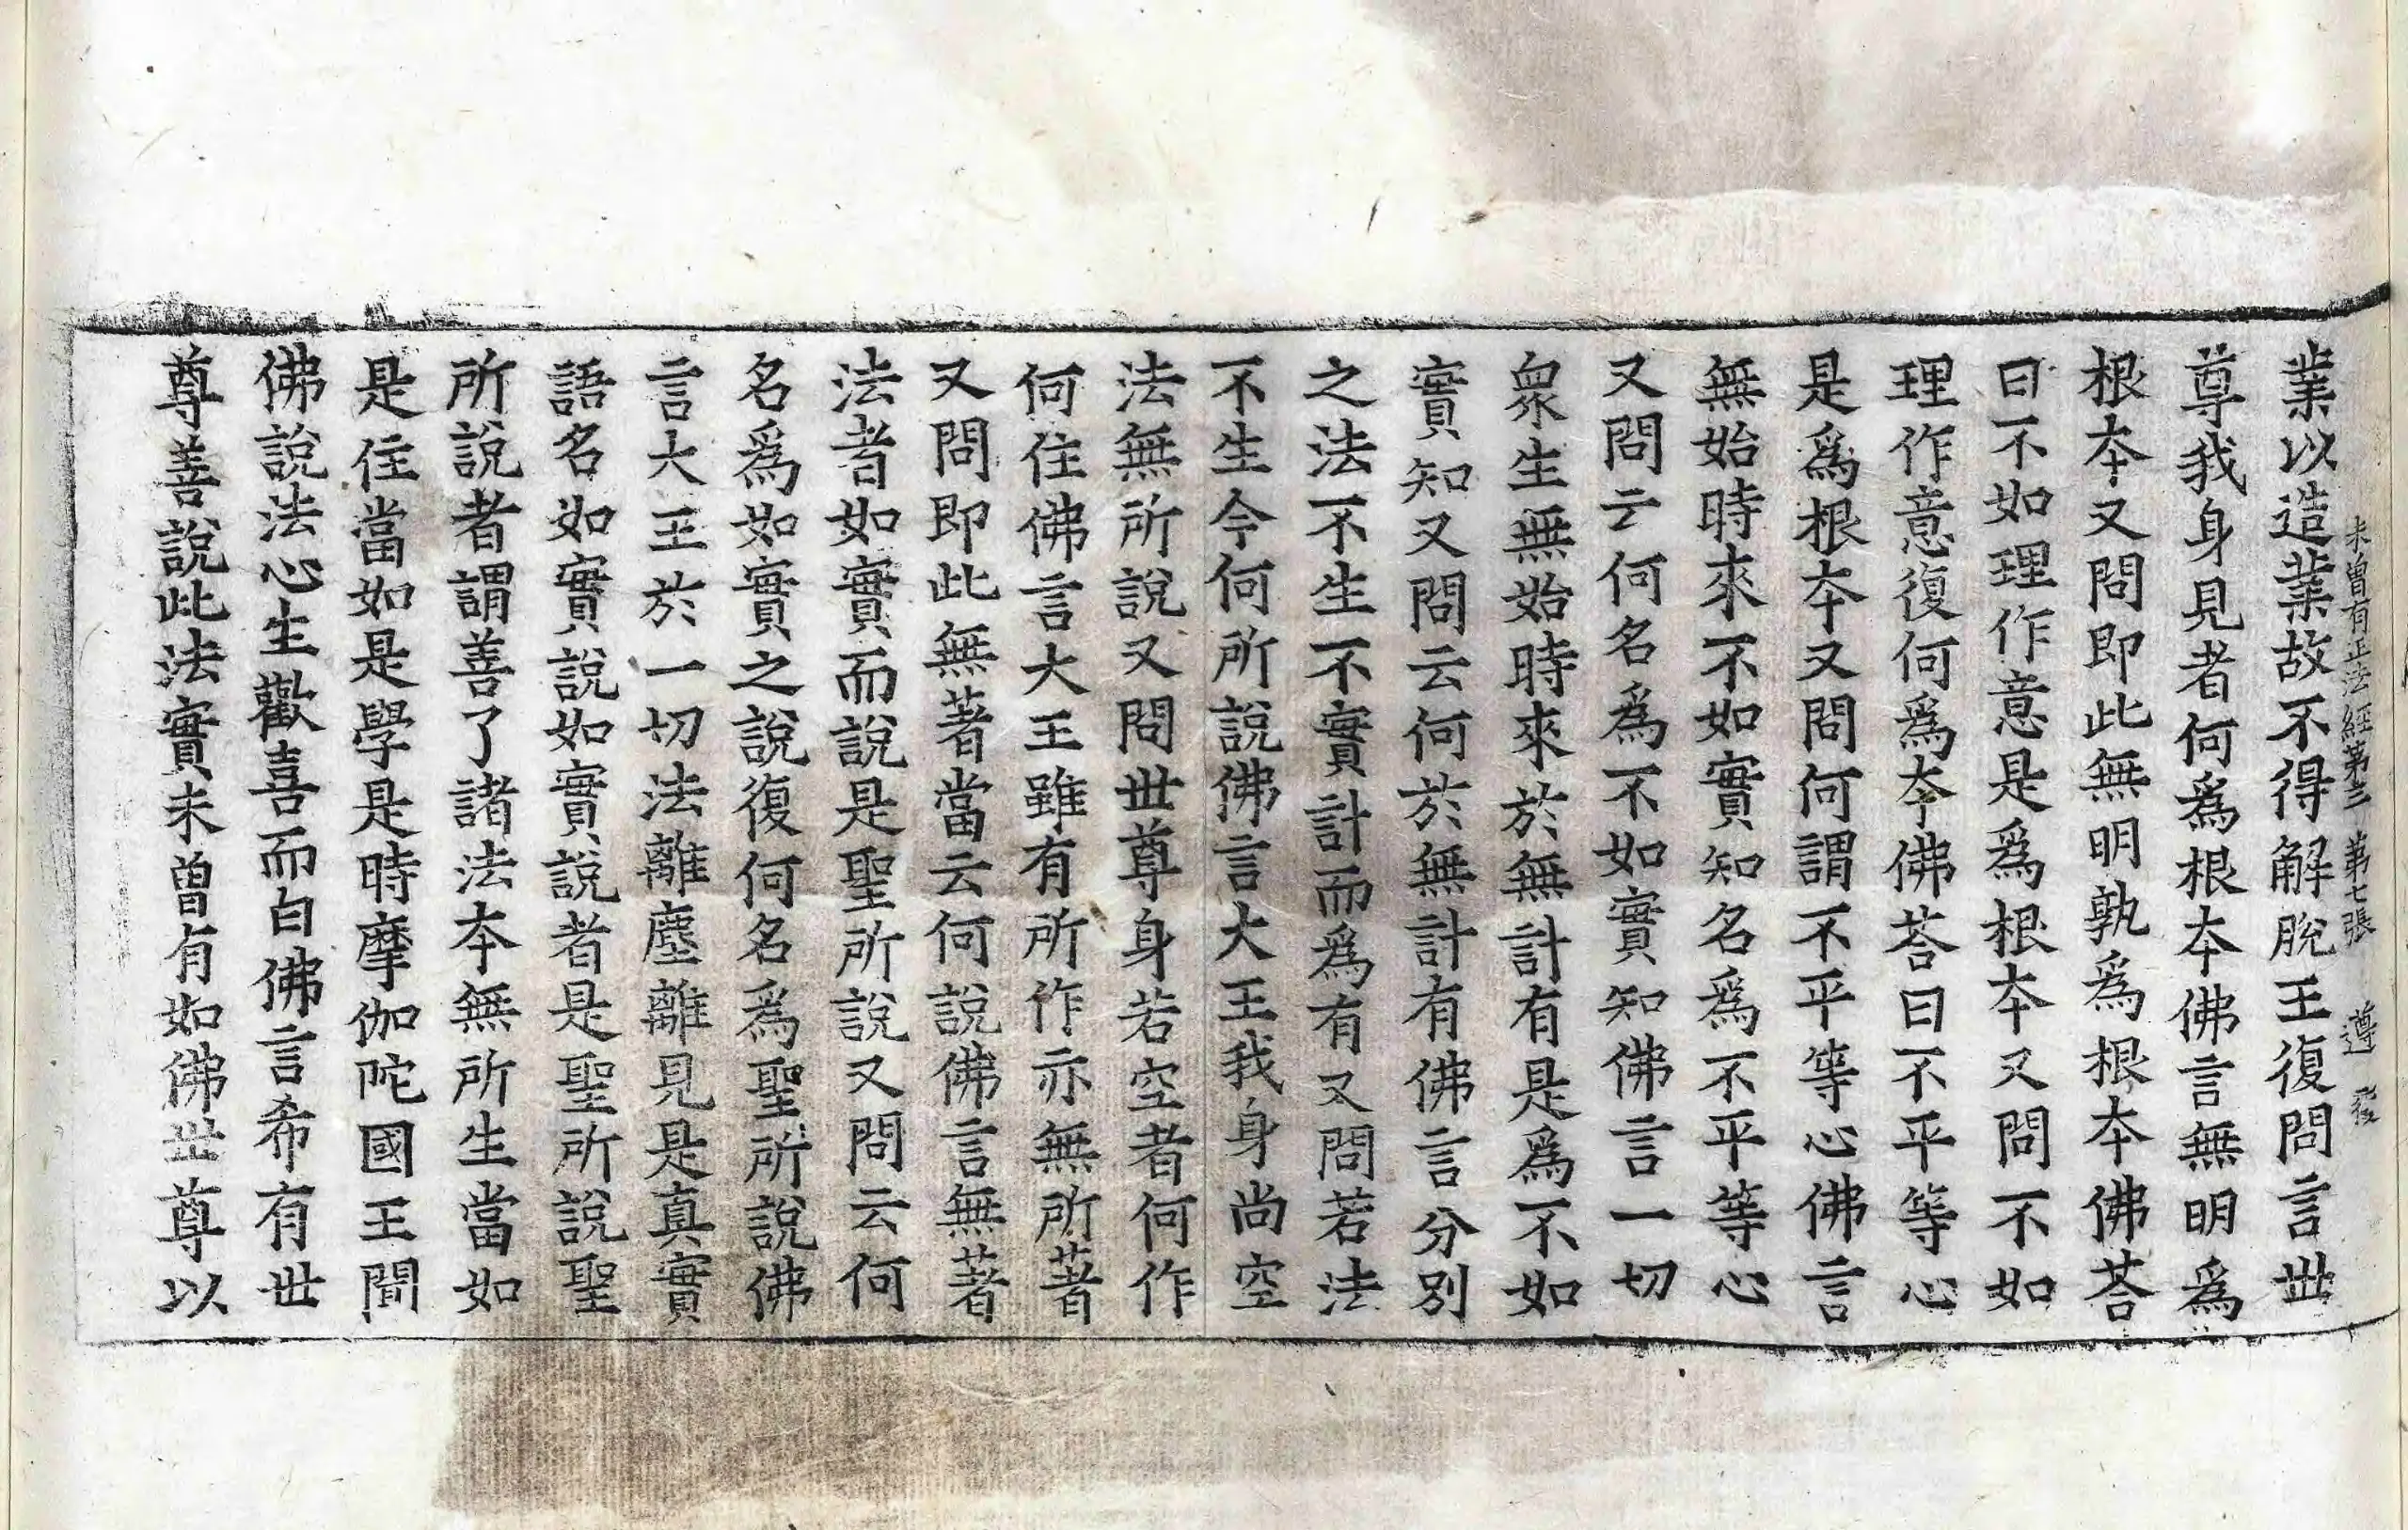 未曾有正法經第六 第七張 遵
業以造業故不得解脫王復問言世
尊我身見者何爲根本佛言無明爲
根本又問即此無明孰爲根本佛荅
曰不如理作意是爲根本又問不如
理作意復何爲本佛荅曰不平等心
是爲根本又問何謂不平等心佛言
無始時來不如實知名爲不平等心
又問云何名爲不如實知佛言一切
衆生無始時來於無計有是爲不如
實知又問云何於無計有佛言分別
之法不生不實計而爲有又問若法
不生今何所說佛言大王我身尚空
法無所說又問世尊身若空者何作
何住佛言大王雖有所作亦無所著
又問即此無著當云何說佛言無著
法者如實而說是聖所說又問云何
名爲如實之說復何名爲聖所說佛
言大王於一切法離塵離見是真實
語名如實說如實說者是聖所說聖
所說者謂善了諸法本無所生當如
是住當如是學是時摩伽陀國王聞
佛說法心生歡喜而白佛言希有世
尊善說此法實未曾有如佛世尊以